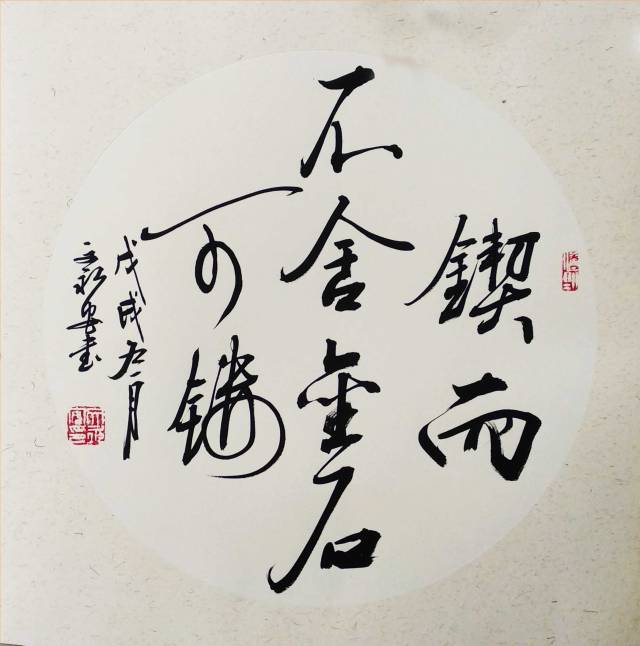 锲而
不舍金石
可镂
戊戌九月
安书